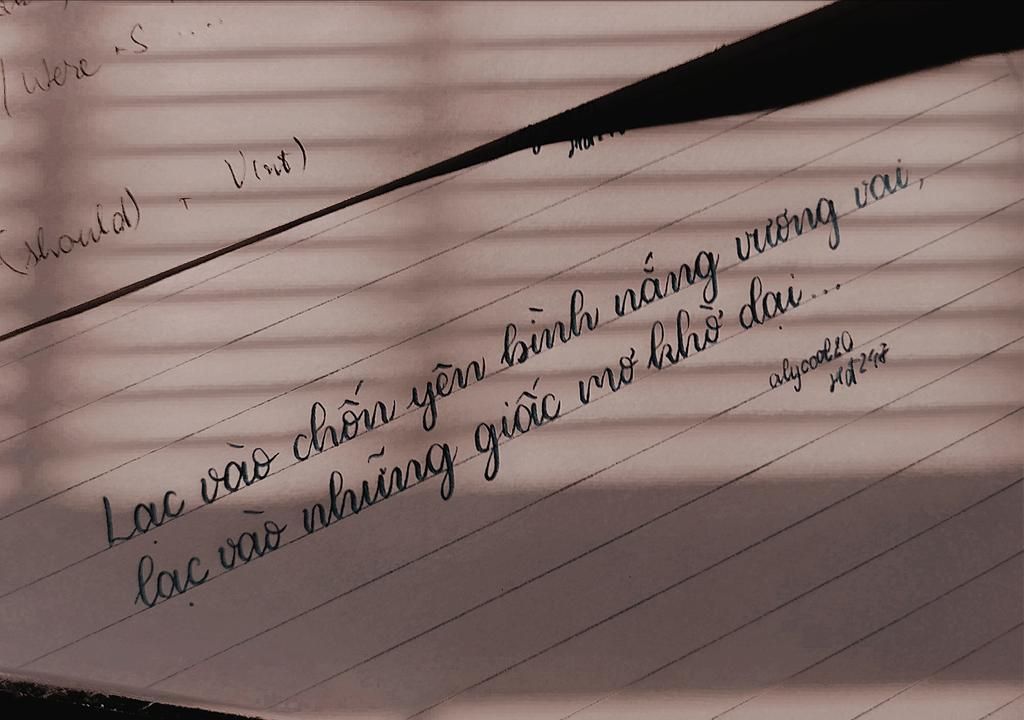 / were
(should) + V(nt)
Lạc vào chốn yên bình nắng vương vai,
lạc vào những giấc mơ khờ dại...